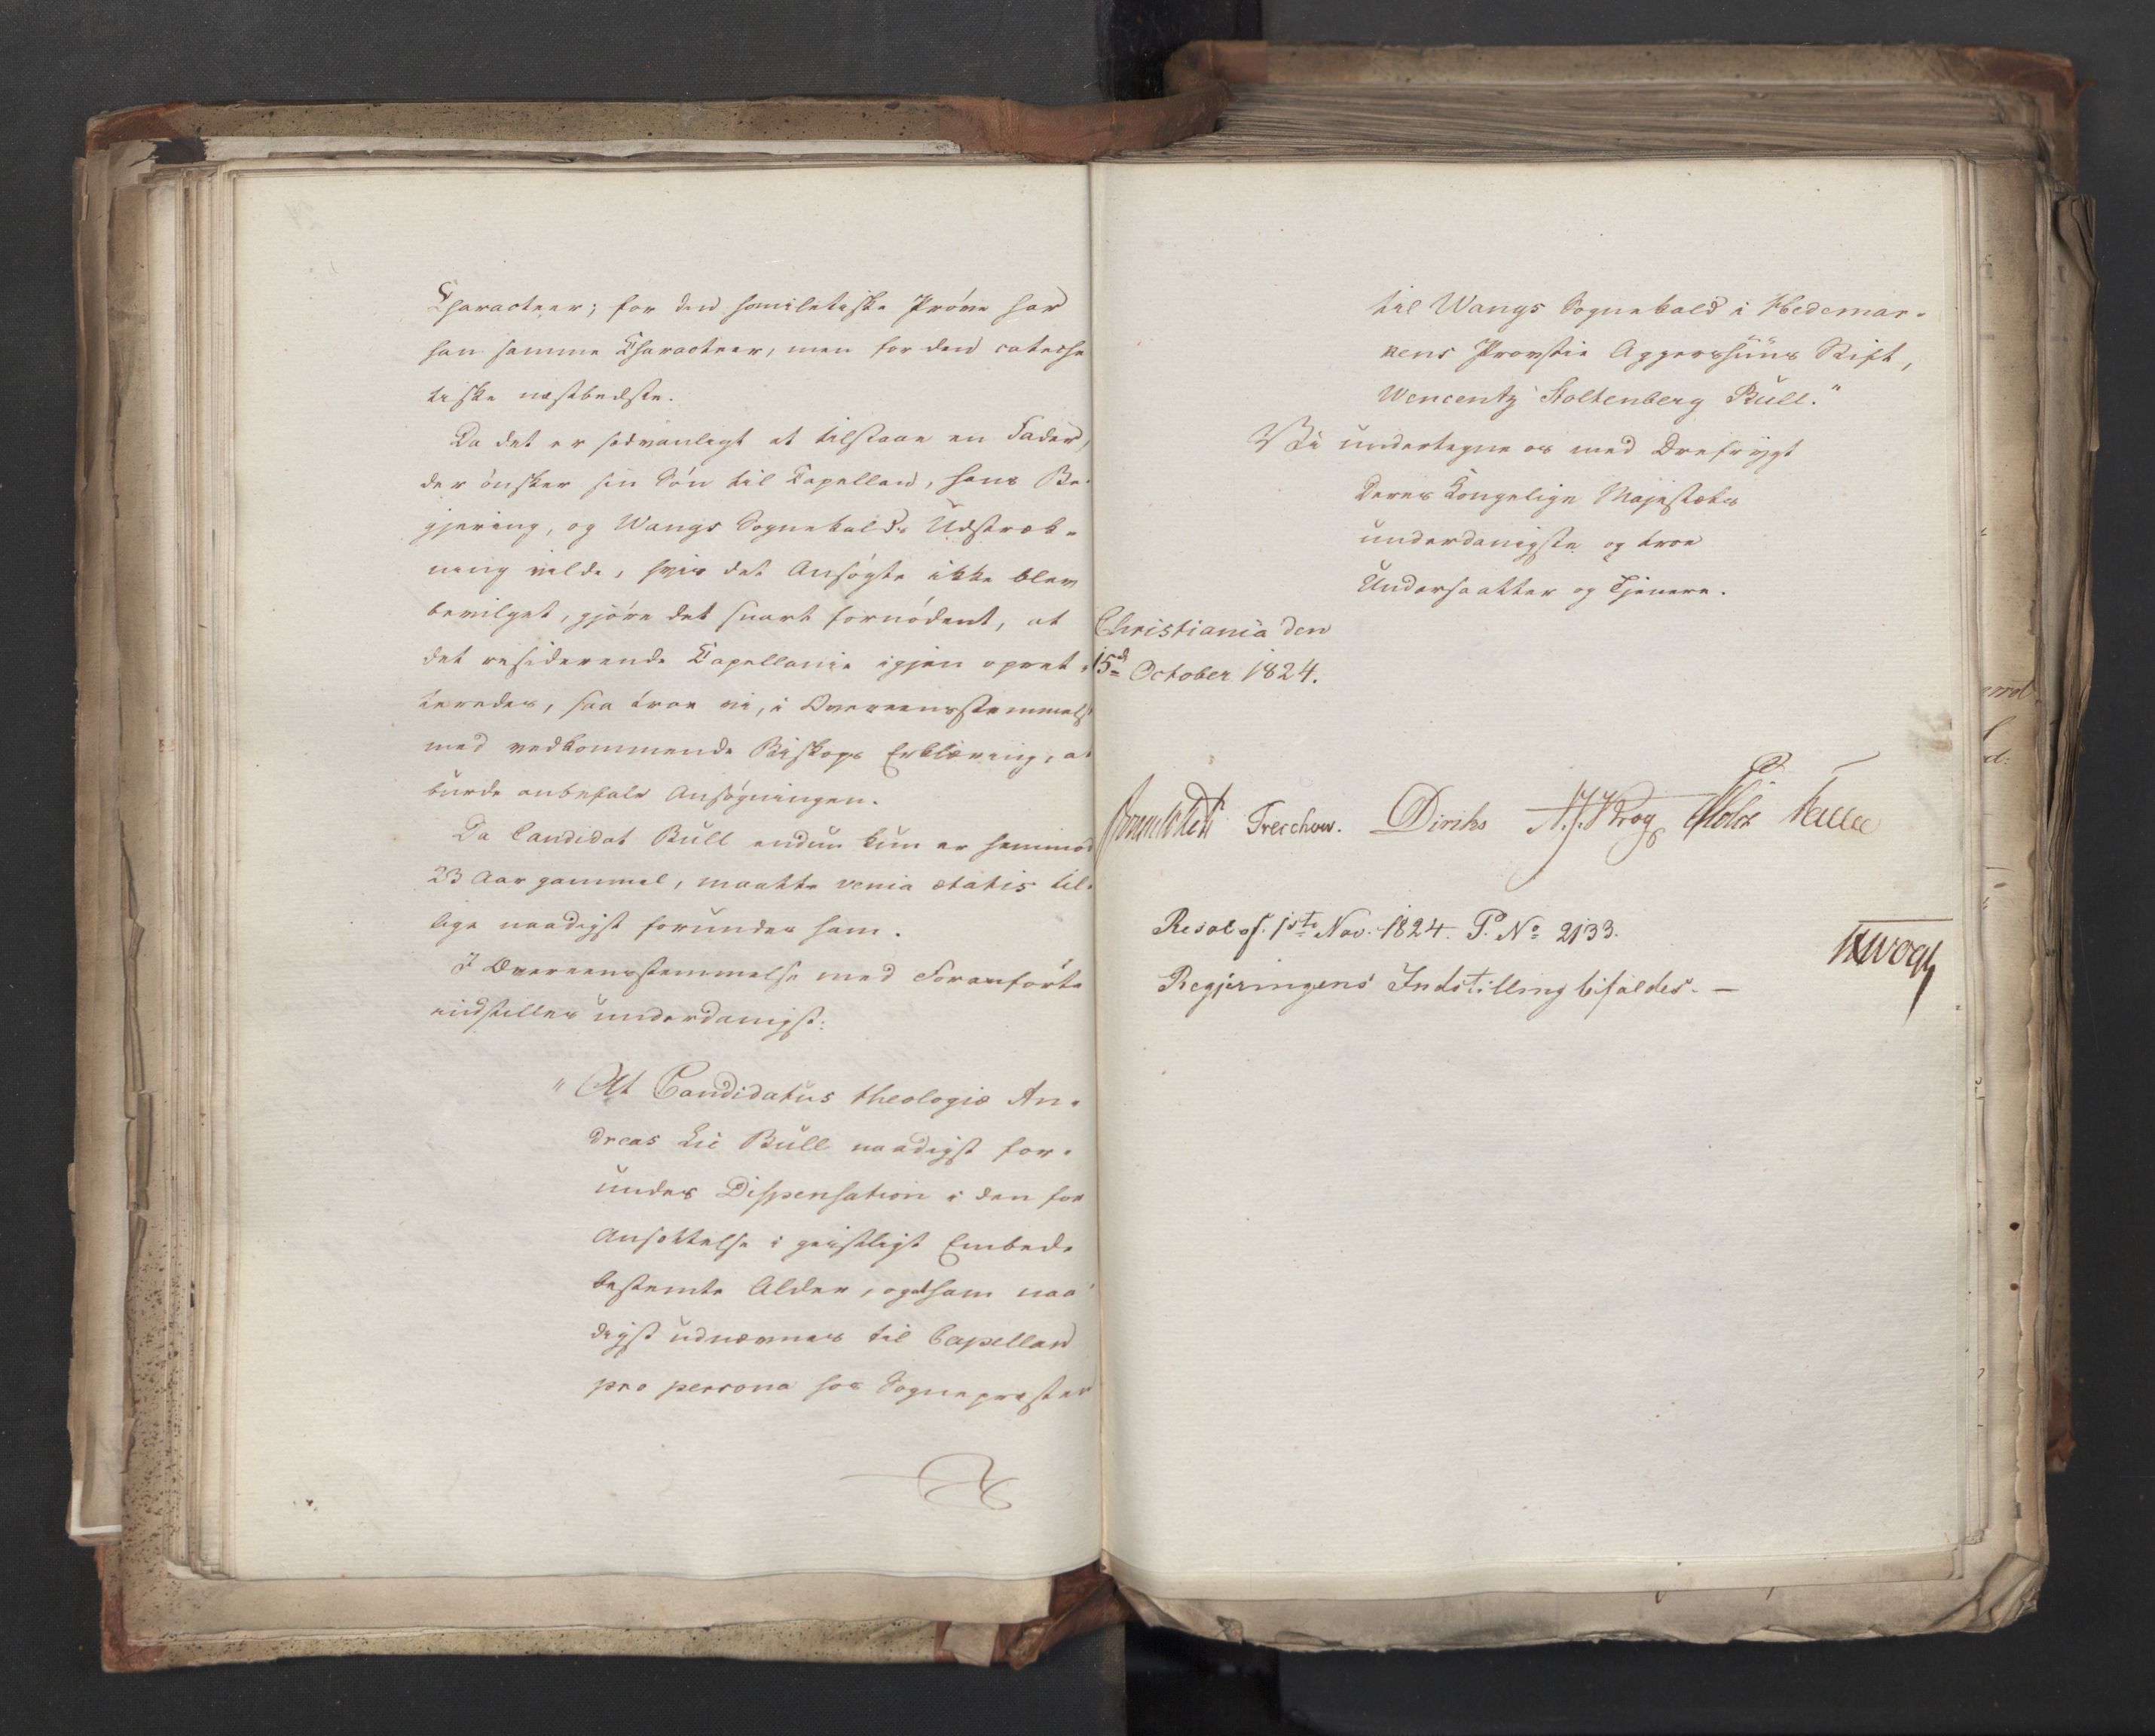 Characteer; for den homiletiske Prøve har
han samme Characteer, men for den cateche
tiske næstbedste.
Da det er sedvanligt at tilstaae en Fader,
der ønsker sin Søn til Capellan, hans Be-
gjering, og Wangs Sognekalds Udstræk-
ning vilde, hvis det Ansøgte ikke blev
bevilget, gjøre det snart fornødent, at
det residerende Capellanie igjen opret-
tedes, saa troe vi, i Overeensstemmelse
med vedkommende Biskops Erklæring, at
burde anbefale Ansøgningen.
Da Candidat Bull endnu kun er henimod
23 Aar gammel, maatte venia ætatis til-
lige naadigst forundes ham.
I Overeensstemmelse med Foranførte
indstilles underdanigst:
"At Candidatus theologiæ An-
dreas Lie Bull naadigst for-
undes Dispensation i den for
Ansættelse i geistligt Embede
bestemte Alder, og at ham naa-
digst udnævnes til Capellan
pro persona hos Sognepræsten
til Wangs Sognekald i Hedemar-
kens Provstie Aggershuus Stift,
Wencentz Stoltenberg Bull."
Vi undertegne os med Ærefrygt
Deres Kongelige Majestæts
underdanigste og troe
Undersaatter og Tjenere.
Christiania den
15d October 1824.
Treschow. Diriks A. J. Krog Holst
Resol. af. 1ste Nov. 1824. P. No 2133.
Regjeringens Indstilling bifaldes. —
Vogt